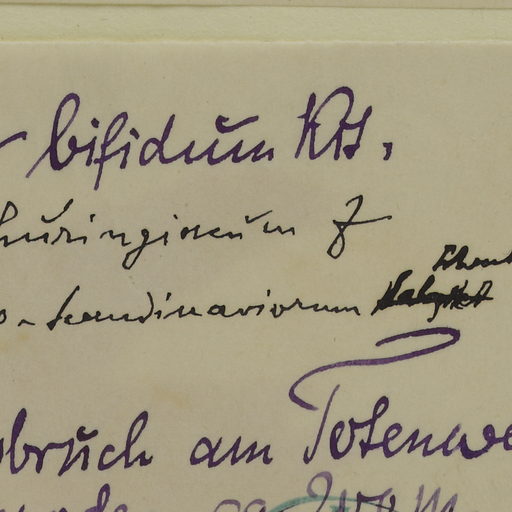 bifidum Kit.
thuringiacum Z
o-scandinaviorum
sbruch am Totenwe